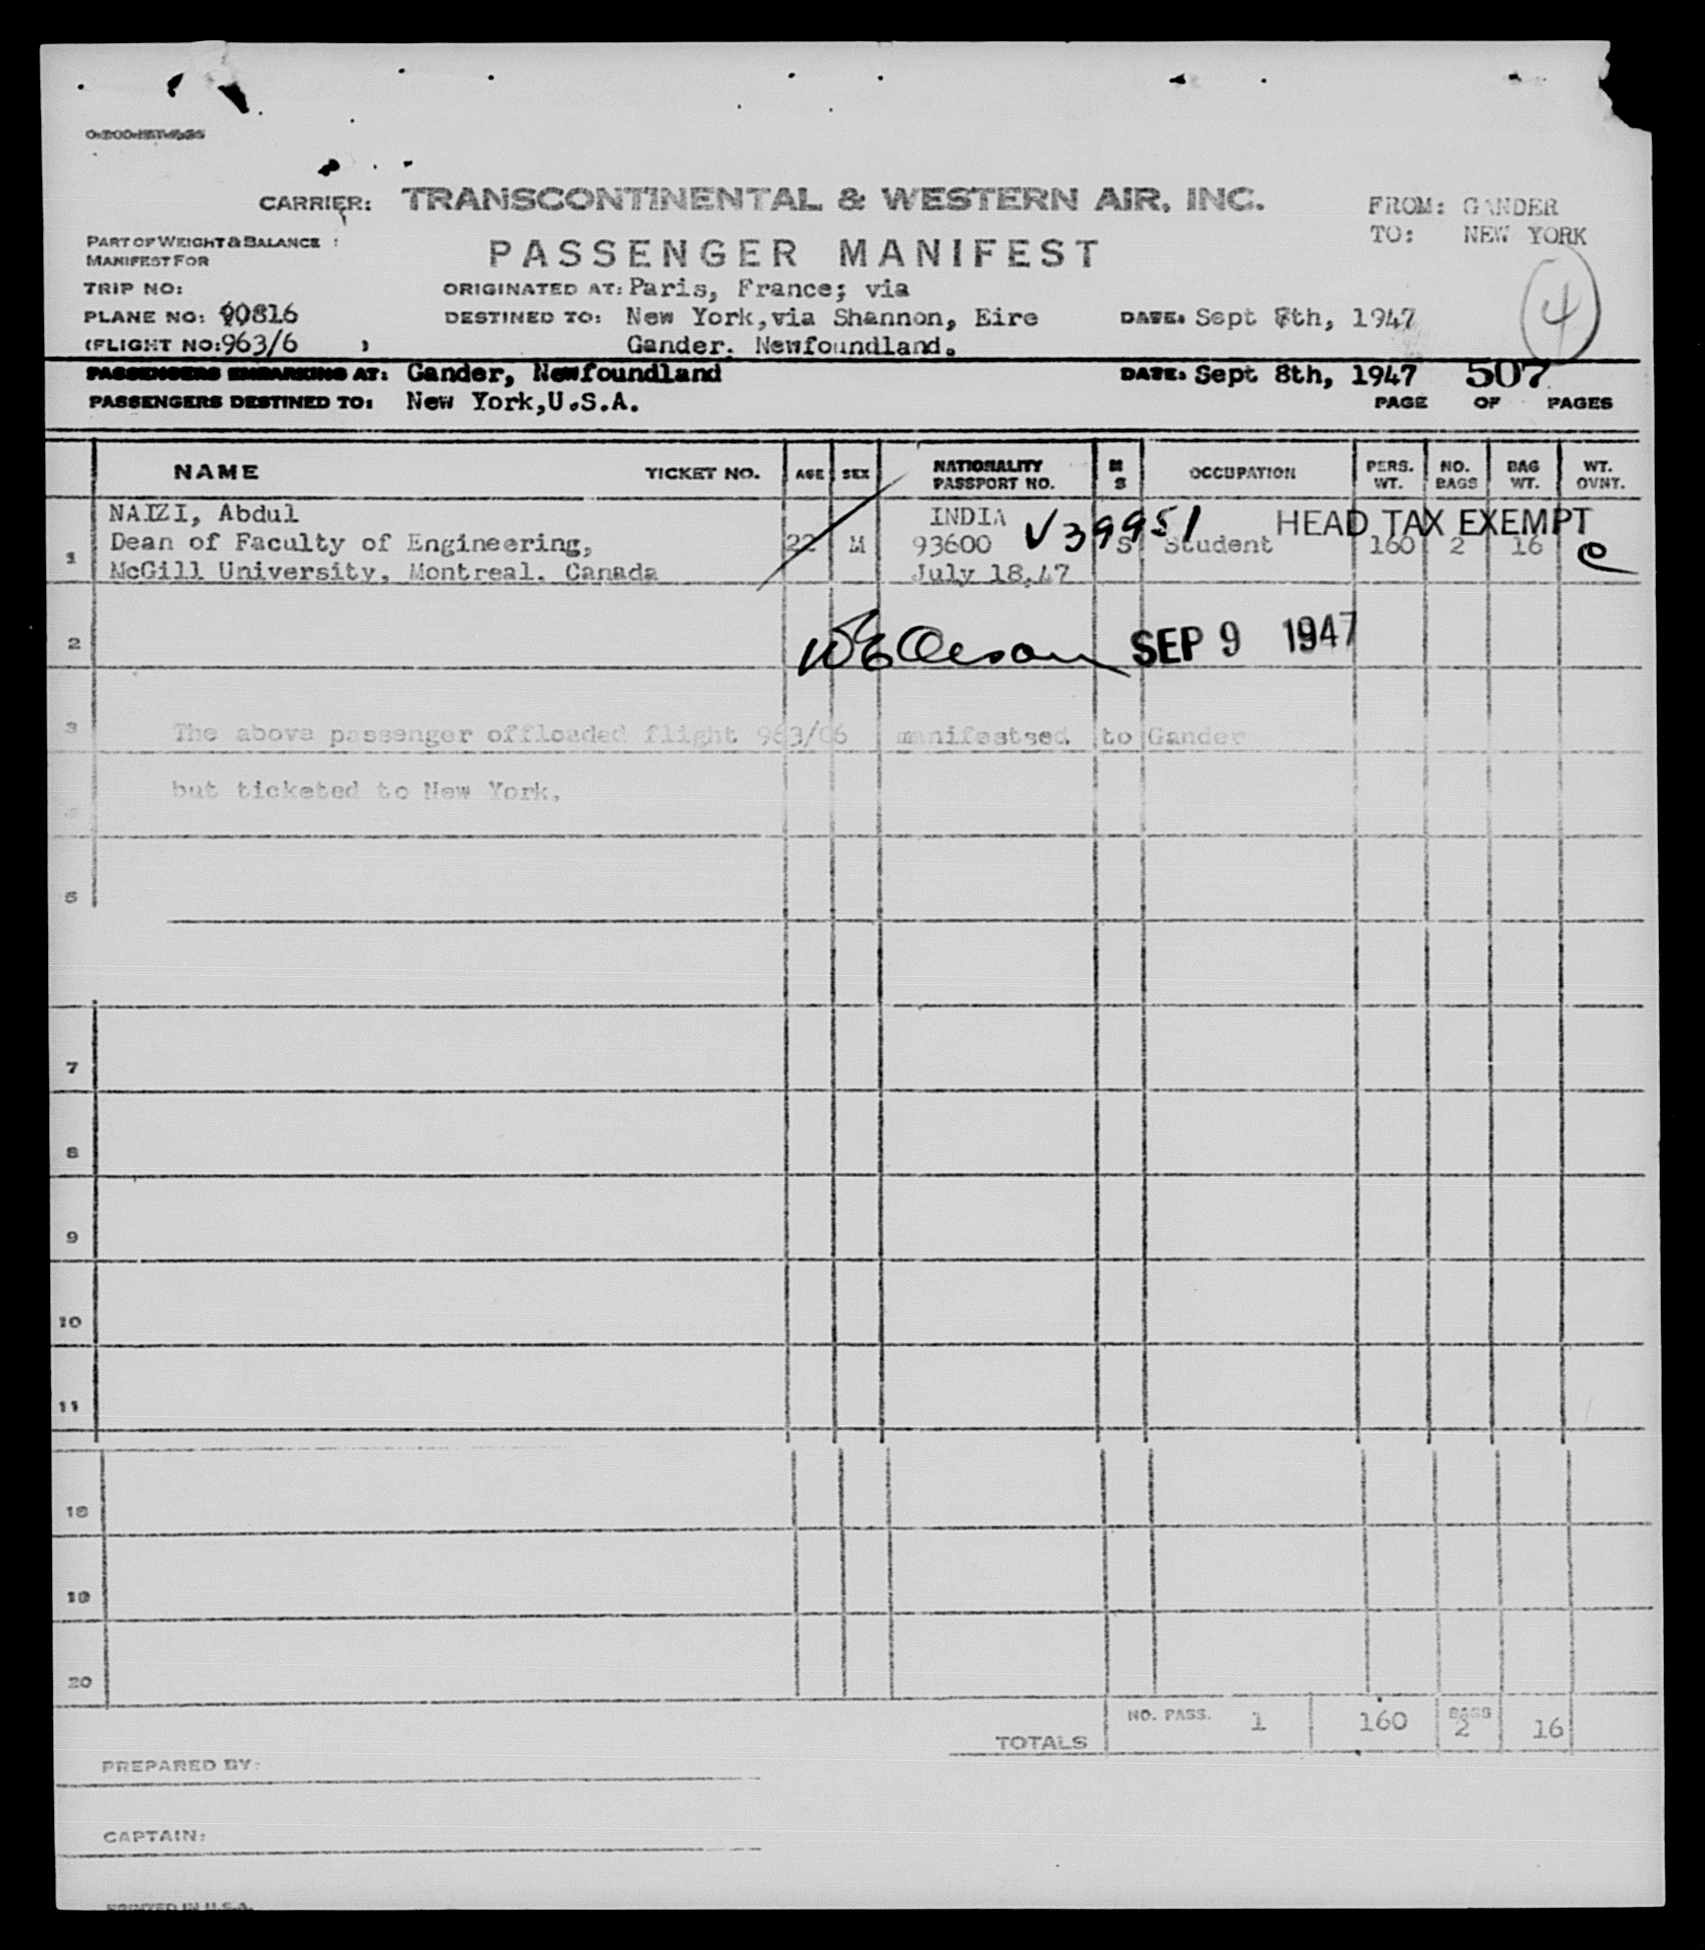 CARRIER: TRANSCONTINENTAL & WESTERN AIR, INC.
FROM: GANDER
TO: NEW YORK
PART OF WEIGHT & BALANCE
MANIFEST FOR
PASSENGER MANIFEST
4
TRIP NO:
ORIGINATED AT: Paris, France; via
PLANE NO: 90816
DESTINED TO: New York,via Shannon, Eire
DATE: Sept 8th, 1947
(FLIGHT NO:963/6 )
Gander. Newfoundland.
PASSENGERS EMBARKING AT: Gander, Newfoundland
DATE: Sept 8th, 1947
507
PASSENGERS DESTINED TO: New York,U.S.A.
PAGE OF PAGES
NAME TICKET NO. AGE SEX NATIONALITY PASSPORT NO. M S OCCUPATION PERS. WT. NO. BAGS BAG WT. WT. OVNT.
NAIZI, Abdul INDIA HEAD TAX EXEMPT
1 Dean of Faculty of Engineering, 22 M 93600 V39951 S Student 160 2 16
McGill University, Montreal. Canada July 18,47
2 SEP 9 1947
3 The above passenger offloaded flight 963/06 manifestsed to Gander
but ticketed to New York,
5
7
8
9
10
11
18
19
20
TOTALS NO. PASS. 1 160 BAGS 2 16
PREPARED BY:
CAPTAIN:
PRINTED IN U.S.A.